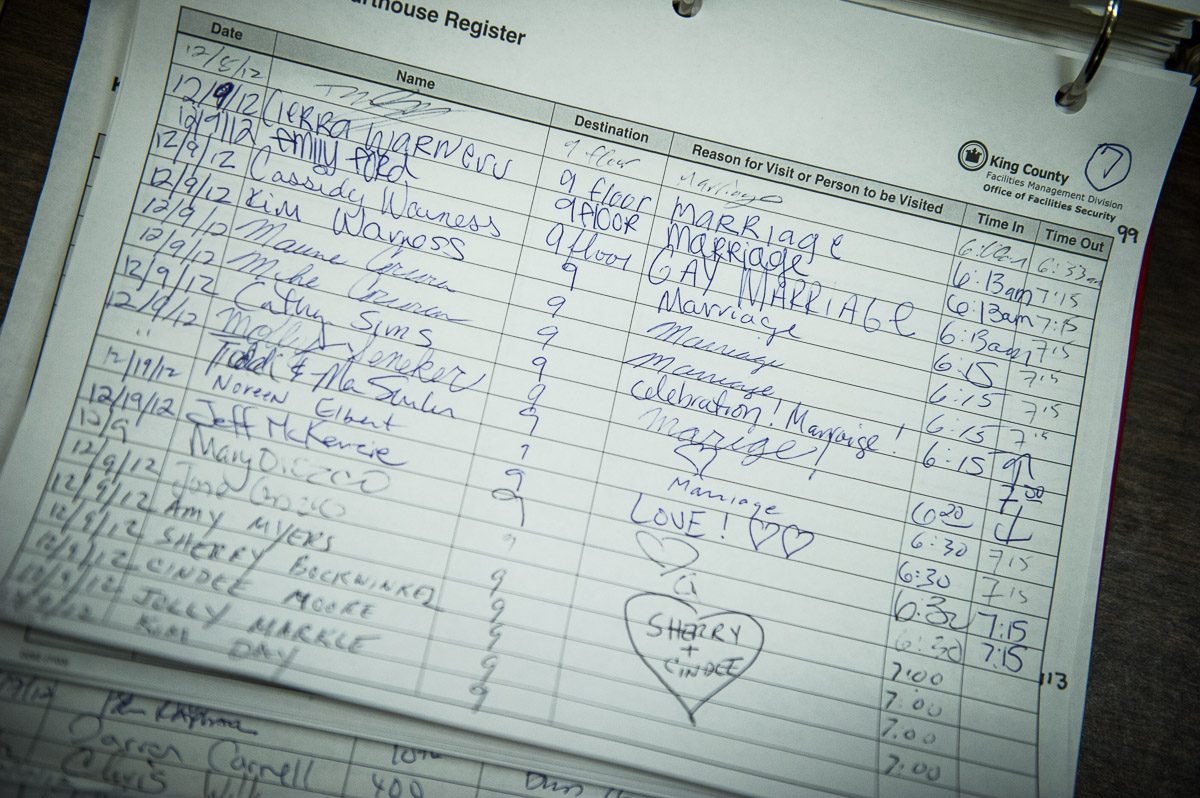 rthouse Register
King County
Facilities Management Division
Office of Facilities Security
7
Date Name Destination Reason for Visit or Person to be Visited Time In Time Out
99
12/5/12 9 floor Marriage
12/9/12 9 floor MARRIAGE 6:13am 7:15
12/9/12 Emily Ford 9 FlOOR MARRIAGE 6:13am 7:15
12/9/12 Cassidy 9 floor GAY MARRIAGE 6:13am 7:15
12/9/12 Kim Warness 9 Marriage 6:15 7:15
12/9/12 9 Marriage 6:15 7:15
12/9/12 Mike 9 Marriage 6:15 7:15
12/9/12 Cathy Sims 9 Celebration! Marraige! 6:15
12/9/12 Molly 9 Marige! 7:00
" Todd & 9 ♡ 6:20
12/19/12 Noreen Elbert Marriage 6:30 7:15
12/19/12 Jeff McKenzie 9 LOVE! ♡♡ 6:30 7:15
12/9 Mary 9 ♡ 6:32 7:15
12/9/12 9 6:30 7:15
12/9/12 AMY MYERS 9 7:00
12/9/12 SHERRY BOCKWINKEL 9 7:00
12/9/12 CINDEE MOORE 9 7:00
12/9/12 JOLLY MARKLE 9 7:00
KIM DAY 9
SHERRY
+
CINDEE
113
Darren Carnell
Chris 400